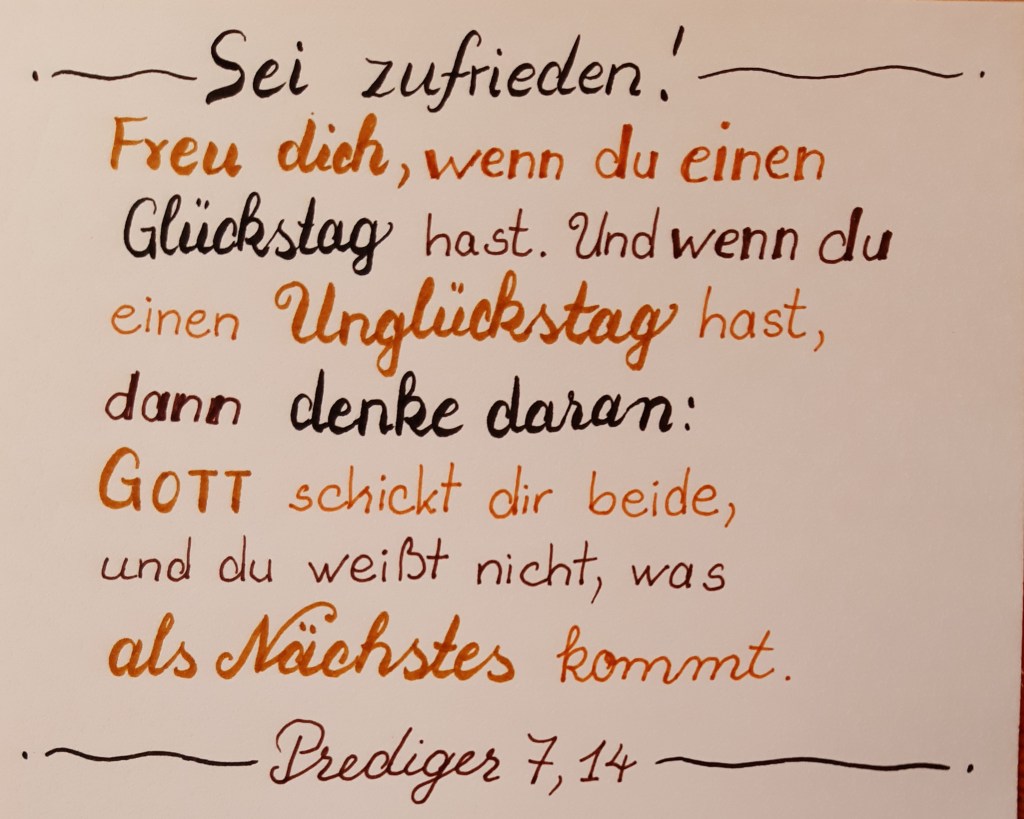 Sei zufrieden!
Freu dich, wenn du einen
Glückstag hast. Und wenn du
einen Unglückstag hast,
dann denke daran:
GOTT schickt dir beide,
und du weißt nicht, was
als Nächstes kommt.
Prediger 7, 14